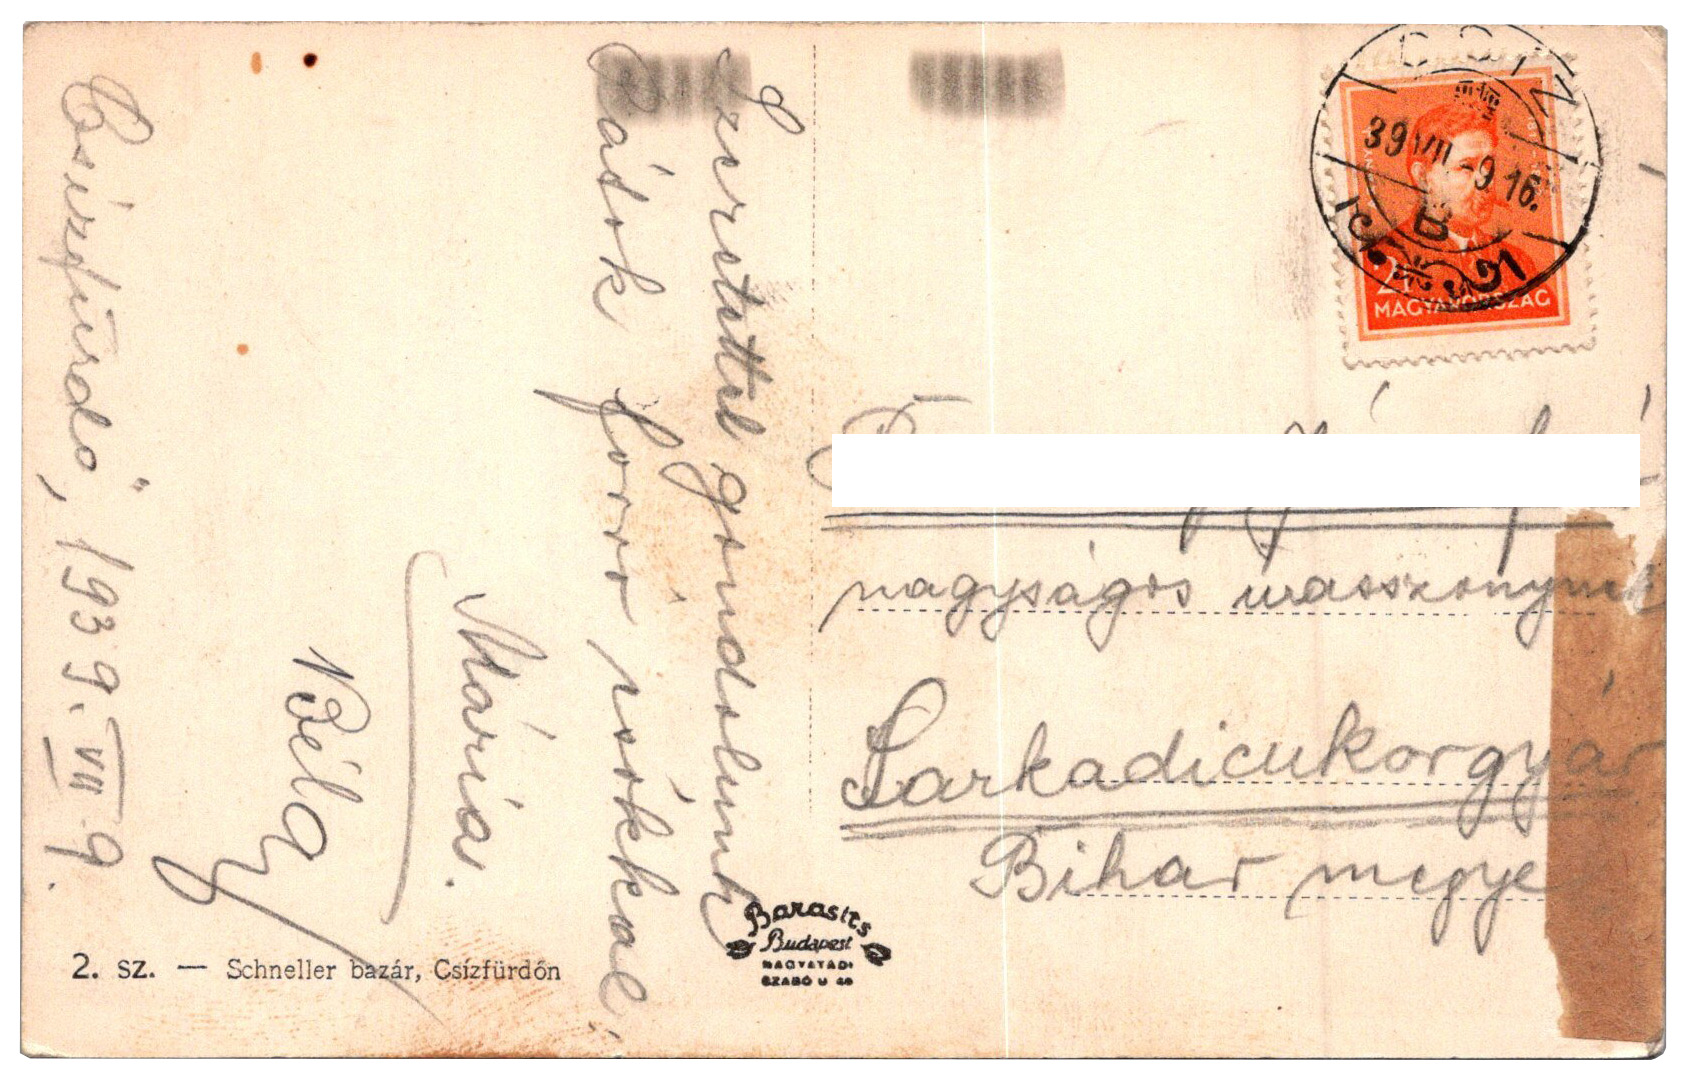 Csízfürdő, 1939. VII. 9.
Szeretettel gondolunk
Rátok forró csókkal:
Mária.
Béla
2. SZ. — Schneller bazár, Csízfürdőn
Barasits
Budapest
NAGYATÁDI
SZABÓ U
CSÍZ
39 VII -9 16.
B
MAGYARORSZÁG
nagyságos urasszonynak
Sarkadicukorgyár
Bihar megye